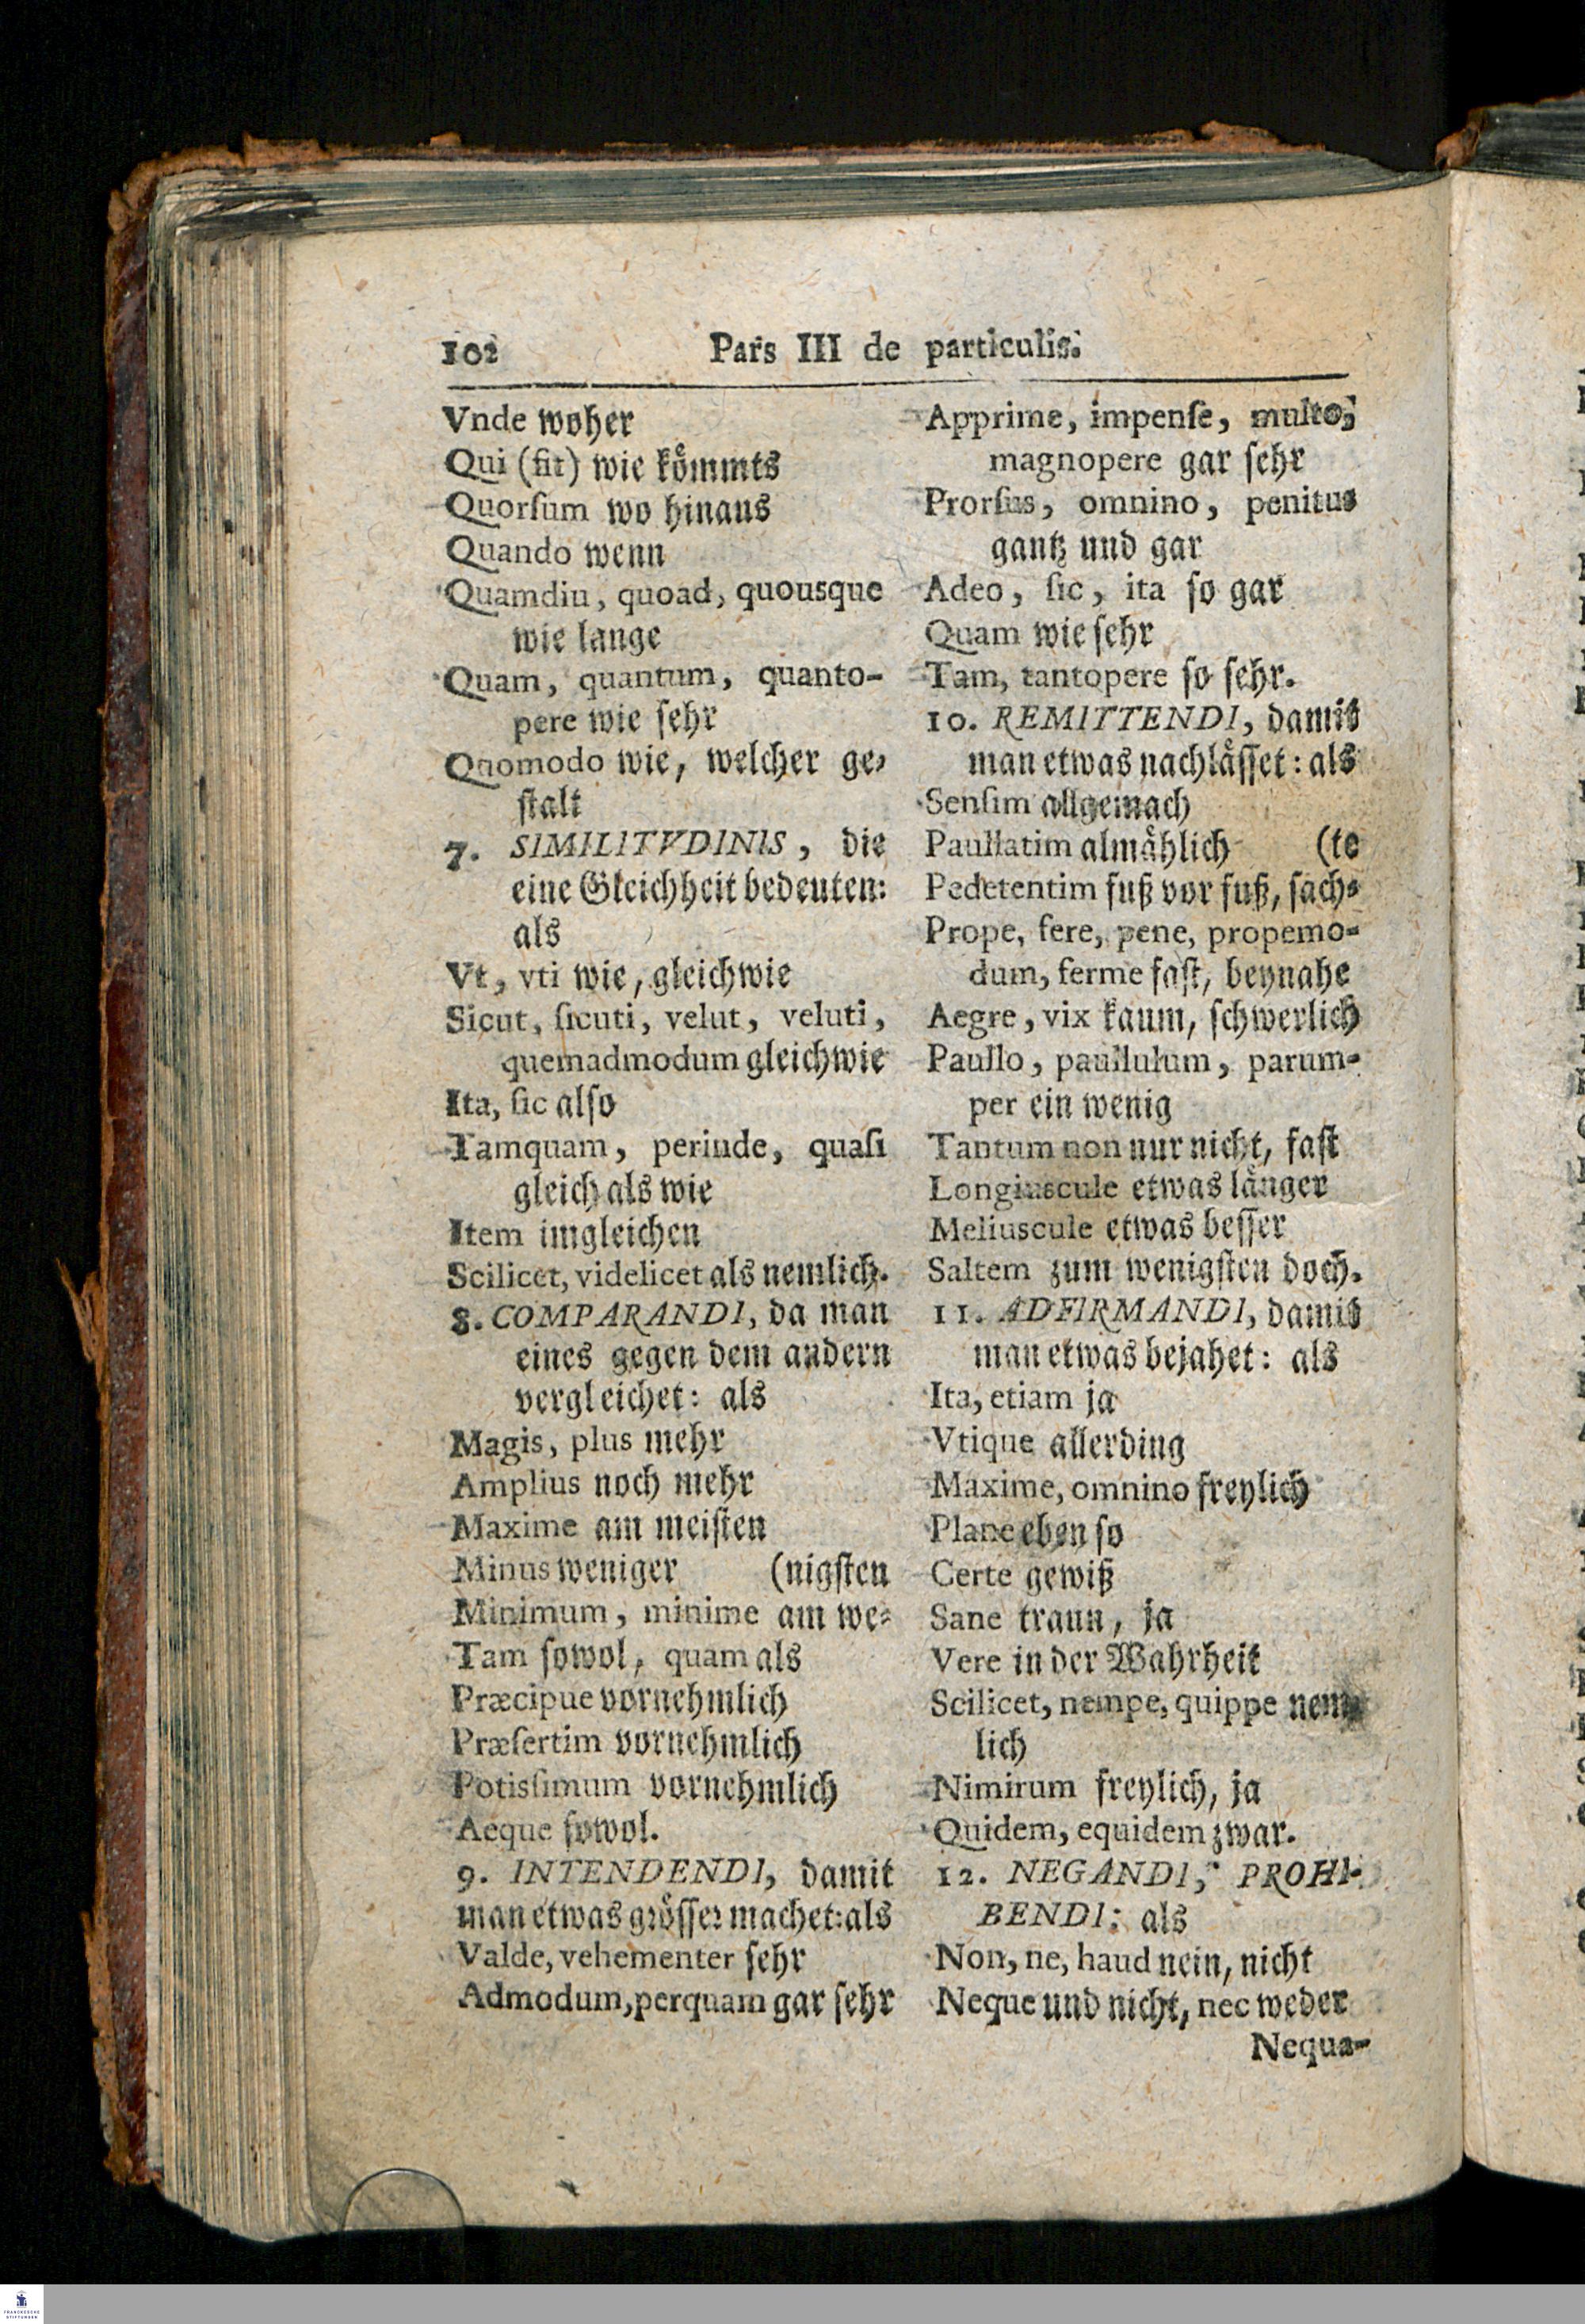 102 Pars III de particulis.
Vnde woher
Qui (fit) wie kömmts
Quorſum wo hinaus
Quando wenn
Quamdiu, quoad, quousque
wie lange
Quam, quantum, quanto-
pere wie ſehr
Quomodo wie, welcher ge-
ſtalt
7. SIMILITVDINIS, die
eine Gleichheit bedeuten:
als
Vt, vti wie, gleichwie
Sicut, ſicuti, velut, veluti,
quemadmodum gleichwie
Ita, ſic alſo
Tamquam, perinde, quaſi
gleich als wie
Item imgleichen
Scilicet, videlicet als nemlich.
8. COMPARANDI, da man
eines gegen dem andern
vergleichet: als
Magis, plus mehr
Amplius noch mehr
Maxime am meiſten
Minus weniger (nigſten
Minimum, minime am we-
Tam ſowol, quam als
Præcipue vornehmlich
Præſertim vornehmlich
Potisſimum vornehmlich
Aeque ſowol.
9. INTENDENDI, damit
man etwas gröſſer machet: als
Valde, vehementer ſehr
Admodum, perquam gar ſehr
Apprime, impenſe, multo,
magnopere gar ſehr
Prorſus, omnino, penitus
gantz und gar
Adeo, ſic, ita ſo gar
Quam wie ſehr
Tam, tantopere ſo ſehr.
10. REMITTENDI, damit
man etwas nachläſſet: als
Senſim allgemach
Paullatim almählich (te
Pedetentim fuß vor fuß, ſach-
Prope, fere, pene, propemo-
dum, ferme faſt, beynahe
Aegre, vix kaum, ſchwerlich
Paullo, paullulum, parum-
per ein wenig
Tantum non nur nicht, faſt
Longiuscule etwas länger
Meliuscule etwas beſſer
Saltem zum wenigſten doch.
11. ADFIRMANDI, damit
man etwas bejahet: als
Ita, etiam ja
Vtique allerding
Maxime, omnino freylich
Plane eben ſo
Certe gewiß
Sane traun, ja
Vere in der Wahrheit
Scilicet, nempe, quippe nem-
lich
Nimirum freylich, ja
Quidem, equidem zwar.
12. NEGANDI, PROHI-
BENDI: als
Non, ne, haud nein, nicht
Neque und nicht, nec weder
Nequa-
FRANCKESCHE
STIFTUNGEN